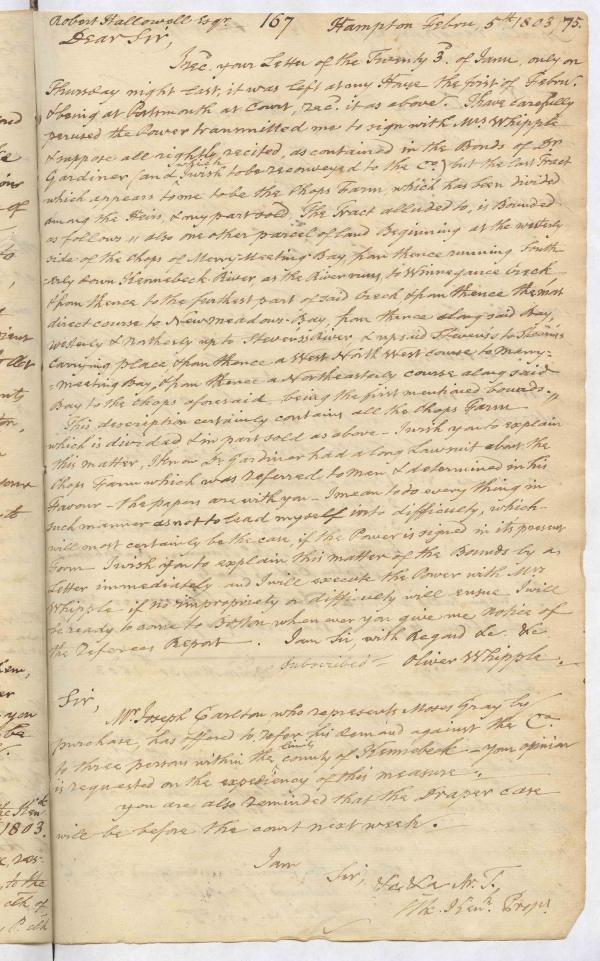 Robert Hallowell Esqr. 167 Hampton Febru, 5th 1803, 75.
Dear Sir,
I rec'd your Letter of the Twenty 3d. of Janu, only on
Thursday night last, it was left at my House the first of Febru.
& being at Portsmouth at Court, rec'd it as above. I have carefully
perused the Power transmitted me to sign with Mrs. Whipple
& suppose all rightly recited, as contained in the Bonds of Dr.
Gardiner (and I wish to be reconveyed to the Co.) but the last Tract
which appears to me to be the Chops Farm, which has been divided
among the Heirs, & my part sold, The Tract alluded to, is Bounded
as follows " also one other parcel of land Beginning at the westerly
side of the Chops of Merry-Meeting Bay, from thence running South
erly down Kennebeck River, as the River runs, to Winnegance Creek
& from thence to the furthest part of said Creek & from thence the most
direct course to New meadows-Bay, from thence along said Bay,
westerly & Northerly up to Stevens's River, & up said Stevens's to Stevens's
Carrying place, & from thence a West North West course to Merry-
-meeting Bay, & from thence a Northeasterly course along said
Bay to the Chops aforesaid, being the first mentioned bounds. "
This description certainly contains all the Chops Farm
which is divided & in part sold as above - I wish you to explain
this matter, I know Dr. Gardiner had a long Lawsuit about the
Chops Farm which was referred to Men & determined in his
Favour - the papers are with you - I mean to do every thing in
such manner as not to lead myself into difficulty, which
will most certainly be the case, if the Power is signed in its present
Form I wish you to explain this matter of the Bounds by a
Letter immediately and I will execute the Power with Mrs
Whipple if no impropriety or difficulty will ensue I will
be ready to come to Boston whenever you give me notice of
the Referees Report. I am Sir, with Regard &c. &c
subscribed - Oliver Whipple.
Sir,
Mr. Joseph Carlton who represents Moses Gray by
purchase, has offered to refer his demand against the Co.
to three persons within the county of Kennebeck - your opinion
is requested on the expediency of this measure.
you are also reminded that the Draper case
will be before the court next week.
I am
Sir, &c. &c. A. T.,
Clk. Kenk. Propr.